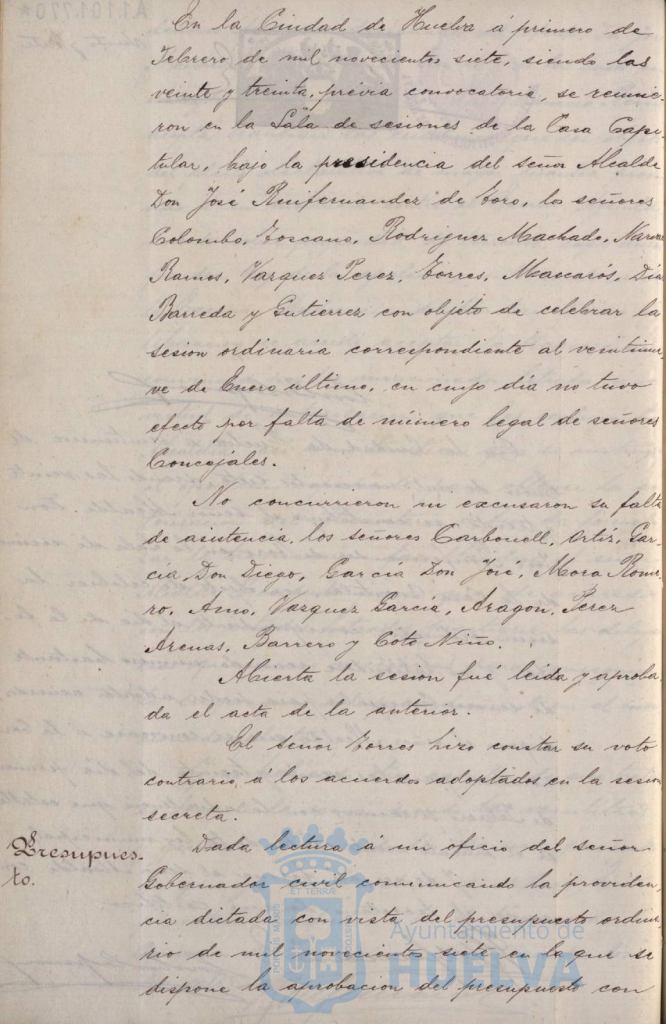 En la Ciudad de Huelva á primero de
Febrero de mil novecientos siete, siendo las
veinte y treinta, prévia convocatoria, se reunie-
ron en la Sala de sesiones de la Casa Capi-
tular, bajo la presidencia del señor Alcalde
Don José Ruifernandez de Toro, los señores
Colombo, Toscano, Rodriguez Machado,
Ramos, Vazquez Perez, Torres, Mascarós, Diaz
Barreda y Gutierrez con objeto de celebrar la
sesion ordinaria correspondiente al veintinue-
ve de Enero último, en cuyo día no tuvo
efecto por falta de número legal de señores
Concejales.
No concurrieron ni excusaron su falta
de asistencia, los señores Carbonell, Ortiz, Gar-
cía Don Diego, García Don José, Mora Rome-
ro, Amo, Vazquez García, Aragon, Perez
Arenas, Barrero y Coto Niño.
Abierta la sesion fué leida y aproba-
da el acta de la anterior.
El señor Torres hizo constar su voto
contrario, á los acuerdos adoptados en la sesion
secreta.
Presupues-
to.
Dada lectura á un oficio del señor
Gobernador civil comunicando la providen-
cia dictada con vista del presupuesto ordina-
rio de mil novecientos siete en la que se
dispone la aprobacion del presupuesto con
Ayuntamiento de
HUELVA